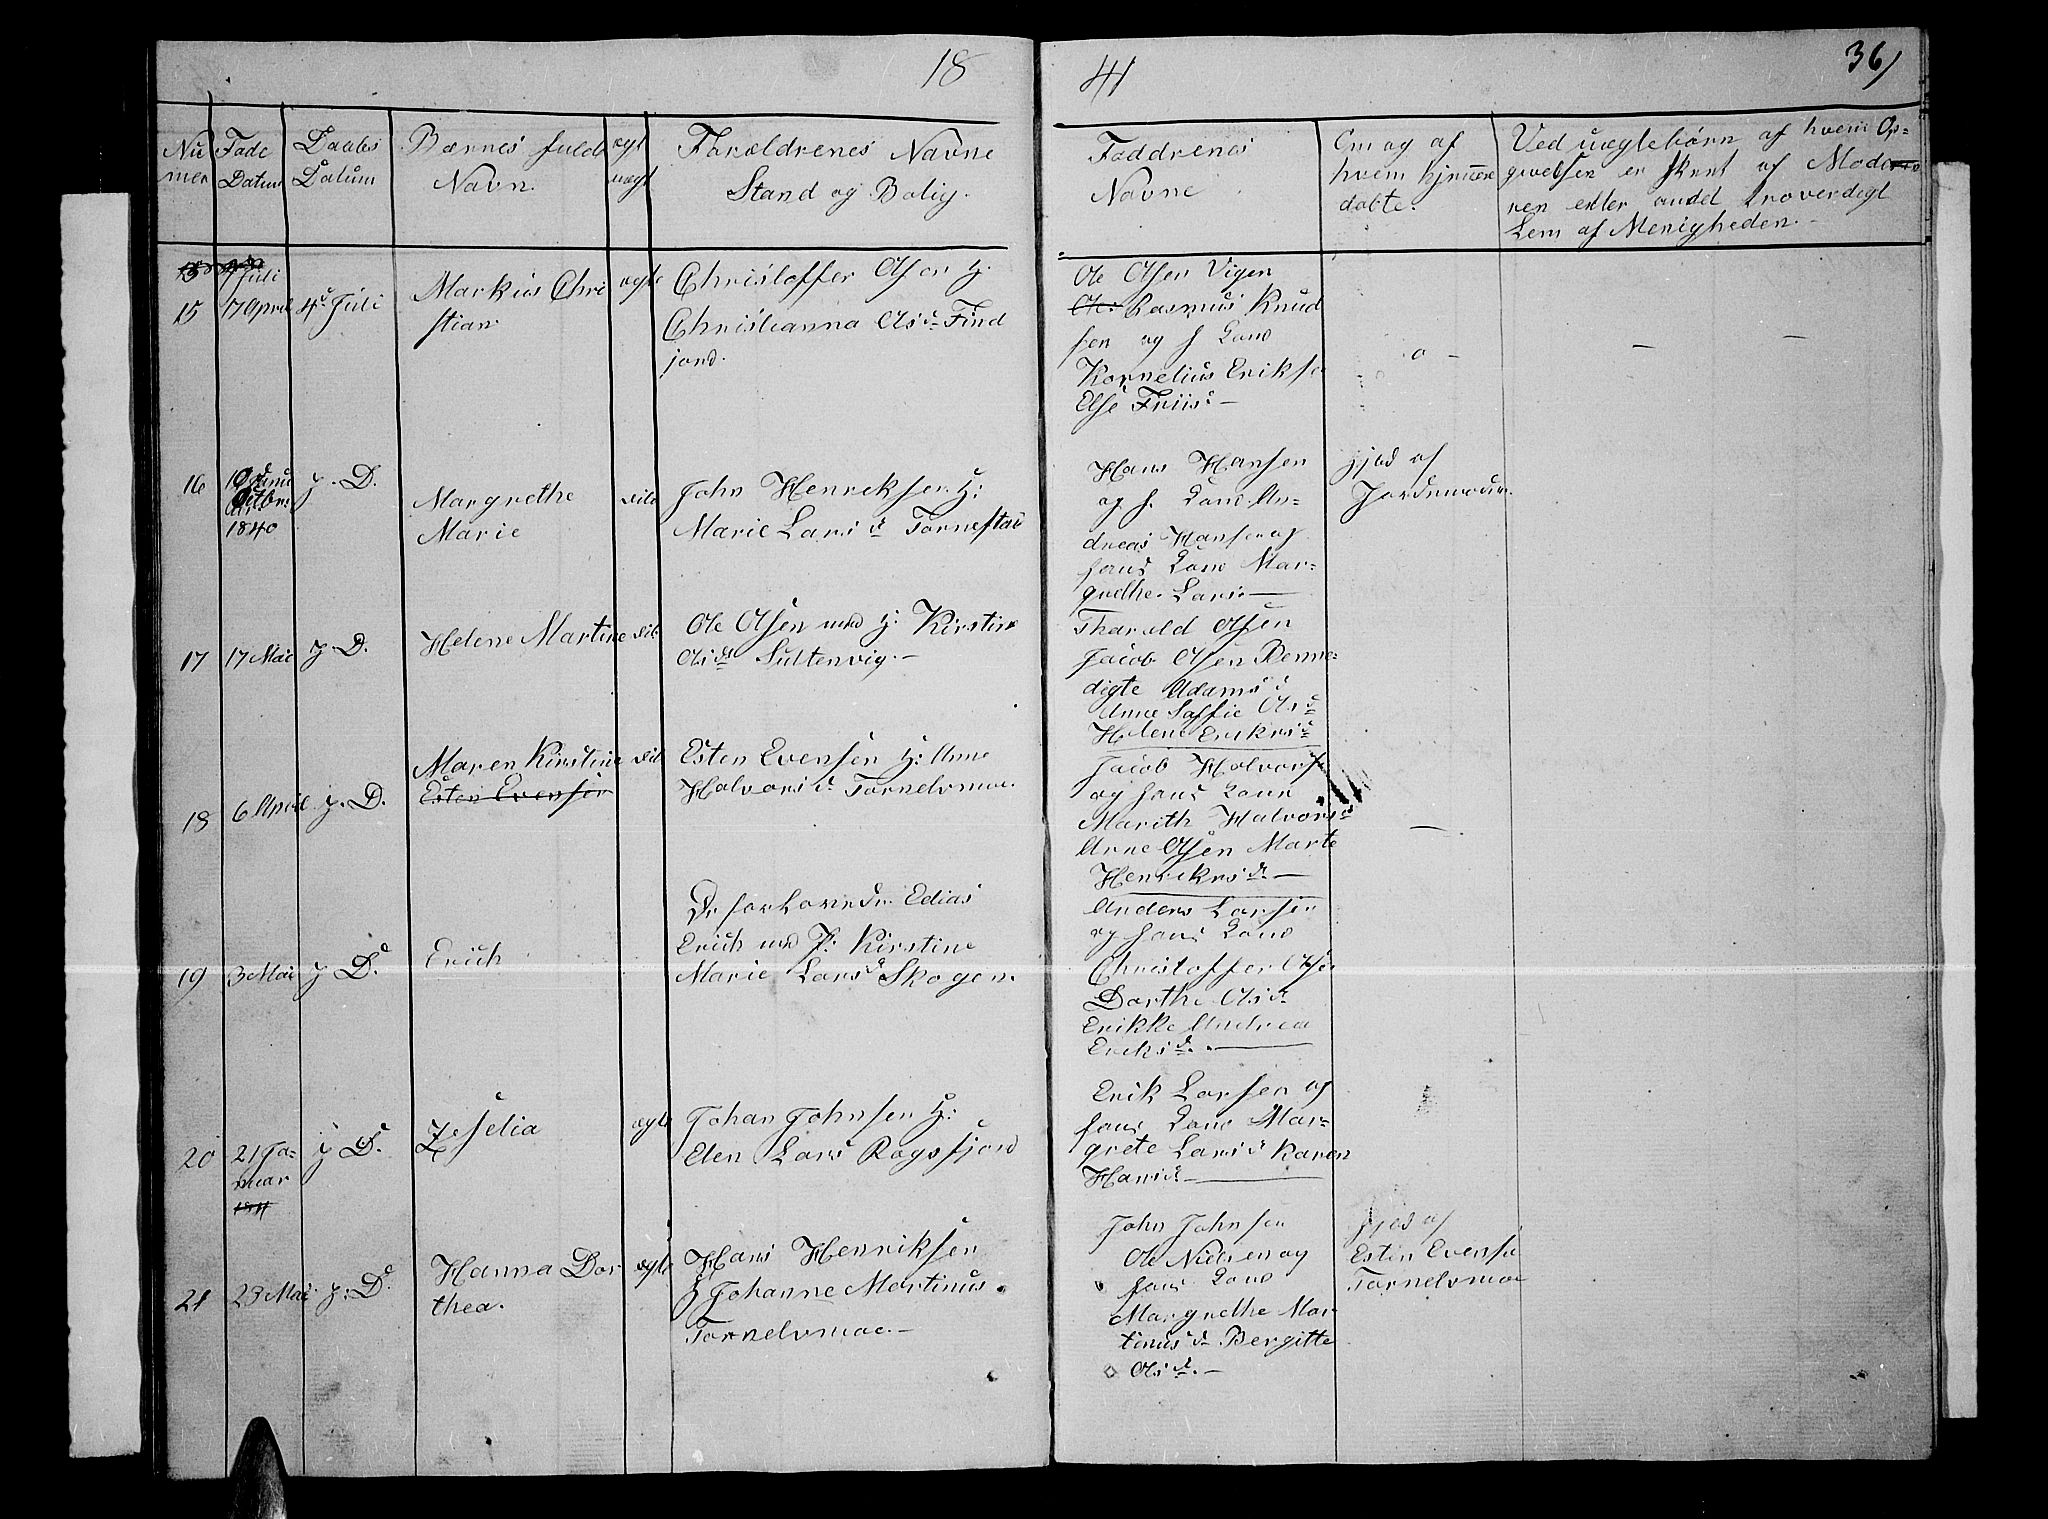 18
41
36
Nu
mer
Føde
Datum
Daabs
Datum
Børnes fulde
Navn
ægt
uægt
Forældrenes Navne
Stand og Bolig.
Faddrenes
Navne
Om og af
hvem hjemme
døbte.
Ved uægtebørn af hvem Op=
givelsen er skeet af Mode
ren eller andet troverdigt
Lem af Menigheden.
15
17 April
4d Juli
Markus Chri
stian
ægte
Christoffer Olsen H.
Christianna Olsd Find
jord.
Ole Olsen Vigen
Rasmus Knud
sen og h Kone
Kornelius Erikse
Else Friis
16
1840
J. D.
Margrethe
Marie
John Henriksen H:
Marie Larsd Tornestad
Hans Hansen
og h. Kone An=
dreas Hansen og
hans Kone Mar=
grethe Lars
hjed af
Jordemoder
17
17 Mai
J. D.
Helene Martine
Ole Olsen med H. Kirstine
Olsd Sultenvig.
Tharald Olsen
Jacob Olsen Benne=
digte Adamsd
Anne Soffie Olsd
Helene Eriksd
18
6 April
J. D.
Maren Kirstine
Esten Evensen
Esten Evensen H: Anne
Halvorsd Tornelvmoe.
Jacob Halvors
og hans Kone
Marith Halvorsd
Anne Olsen Marte
Henriksd
19
3 Mai
J D.
Erich
Edias
Erich med H: Kirstine
Marie Larsd Skogen.
Anders Larsen
og hans Kone
Christoffer Olse
Dorthe Olsd
Erikke Andrea
Eriksd.
20
21 Ja=
nuar
J D.
Zeselia
ægte
Johan Johnsen H:
Elen Lars Rogsfjord
Erik Larsen og
hans Kone Mar=
grete Larsd Karen
Hansd
21
23 Mai
J. D.
Hanna Dor
thea.
ægte
Hans Henriksen
H Johanne Martinus.
Tornelvmoe.
John Johnsen
Ole Nielsen og
hans Kone
Margrethe Mar
tinusd Bergitte
Olsd.
hjed af
Esten Evense
Tornelvmoe